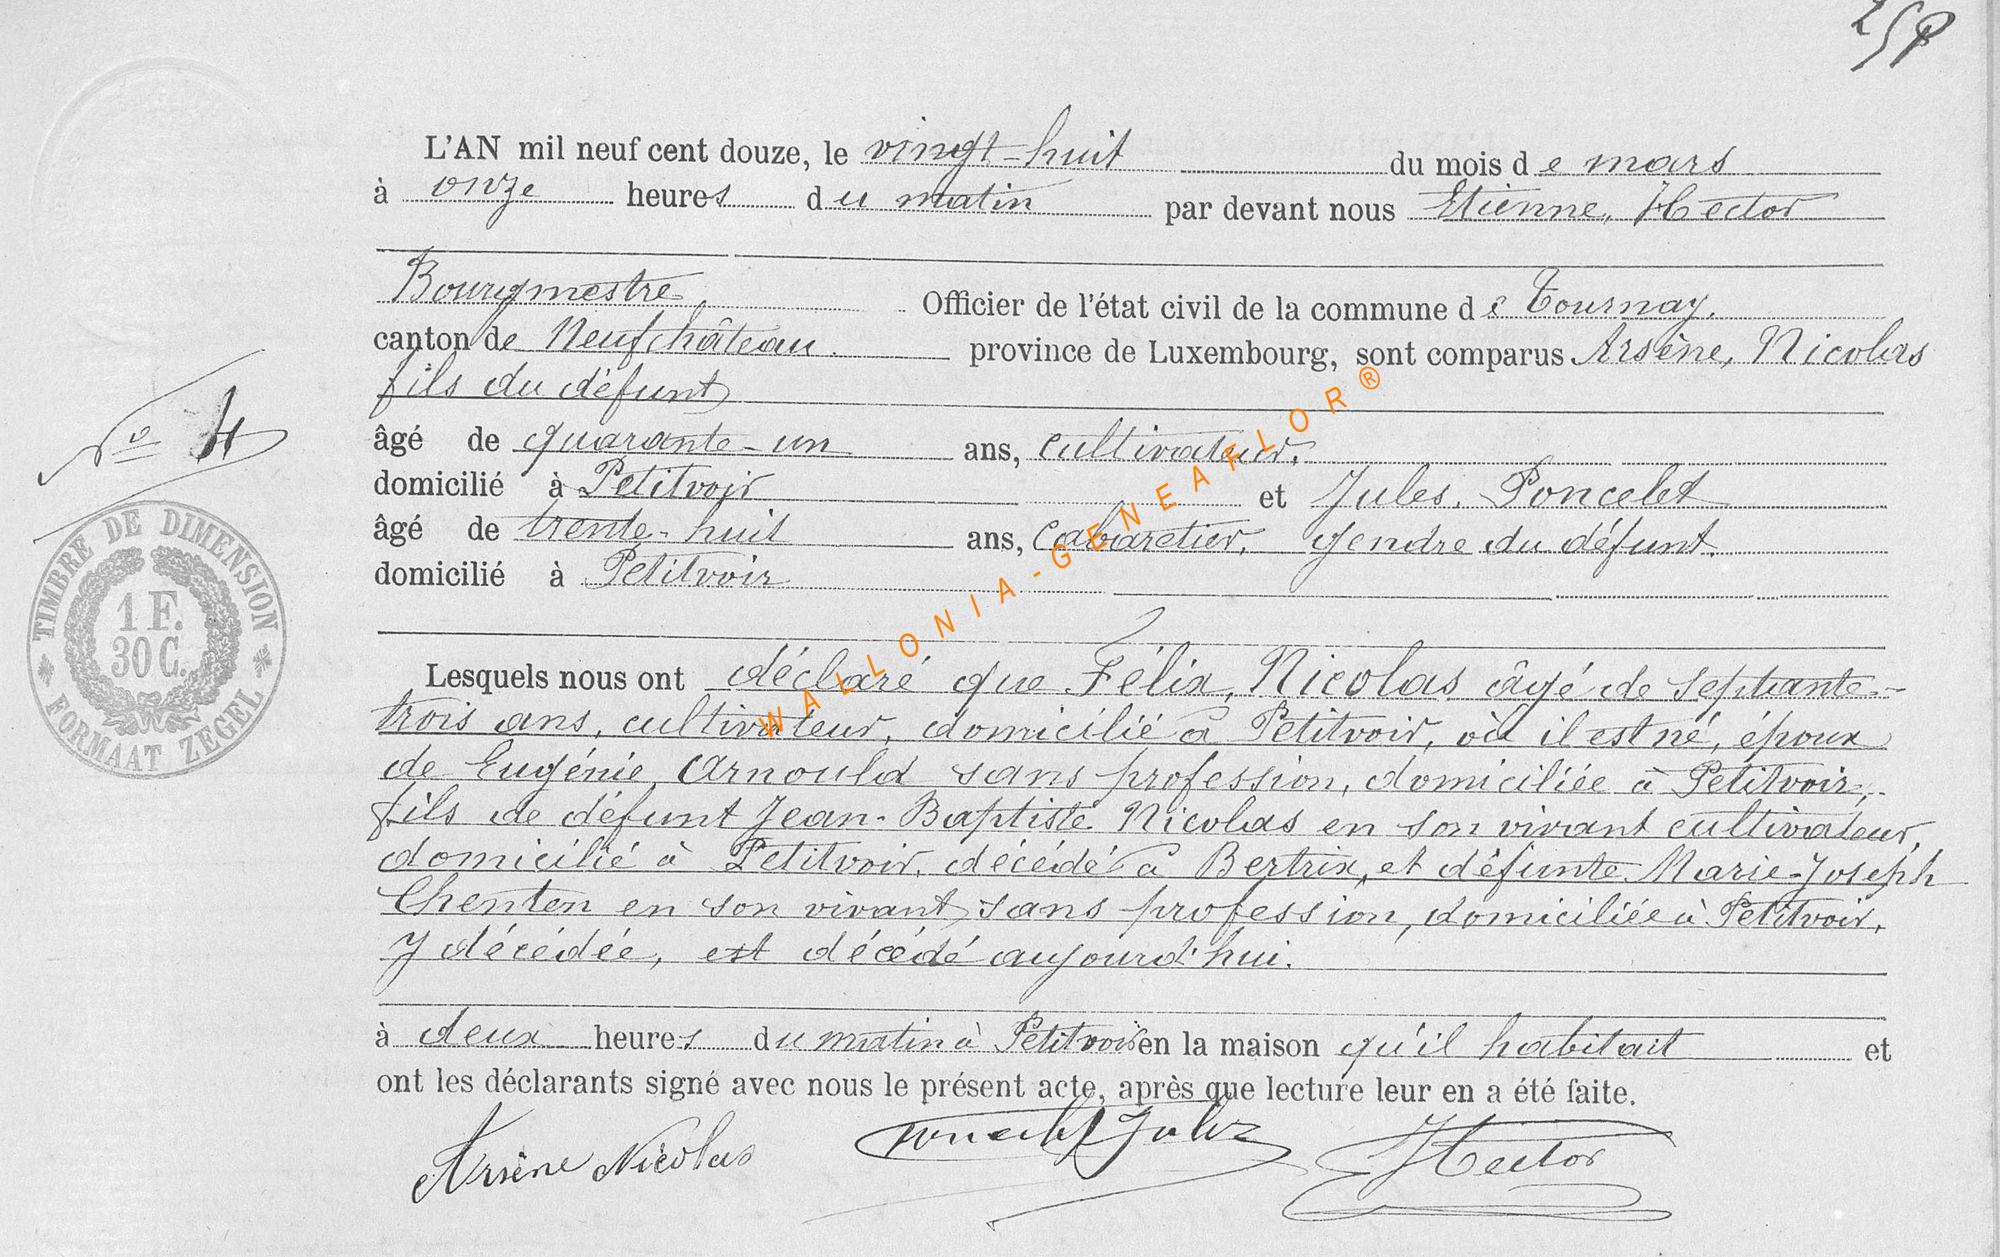 258
L'AN mil neuf cent douze, le vingt-huit du mois de mars
à onze heures du matin par devant nous Etienne, Hector
Bourgmestre, Officier de l'état civil de la commune de Tournay.
canton de Neufchâteau. province de Luxembourg, sont comparus Arsène, Nicolas
fils du défunt
âgé de quarante-un ans, cultivateur.
domicilié à Petitvoir et Jules, Poncelet
âgé de trente-huit ans, cabaretier, gendre du défunt.
domicilié à Petitvoir
N° 4
TIMBRE DE DIMENSION
1 F.
30 C.
FORMAAT ZEGEL
WALLONIA-GENEAFLOR®
Lesquels nous ont déclaré que Félix, Nicolas âgé de septante-
trois ans, cultivateur, domicilié à Petitvoir, où il est né, époux
de Eugénie, Arnould sans profession, domiciliée à Petitvoir,
fils de défunt Jean-Baptiste Nicolas en son vivant cultivateur,
domicilié à Petitvoir, décédé à Bertrix, et défunte Marie-Joseph
Chenten en son vivant sans profession, domiciliée à Petitvoir,
y décédée, est décédé aujourd'hui.
à deux heures du matin à Petitvoir en la maison qu'il habitait et
ont les déclarants signé avec nous le présent acte, après que lecture leur en a été faite.
Arsène Nicolas Poncelet Jules Hector